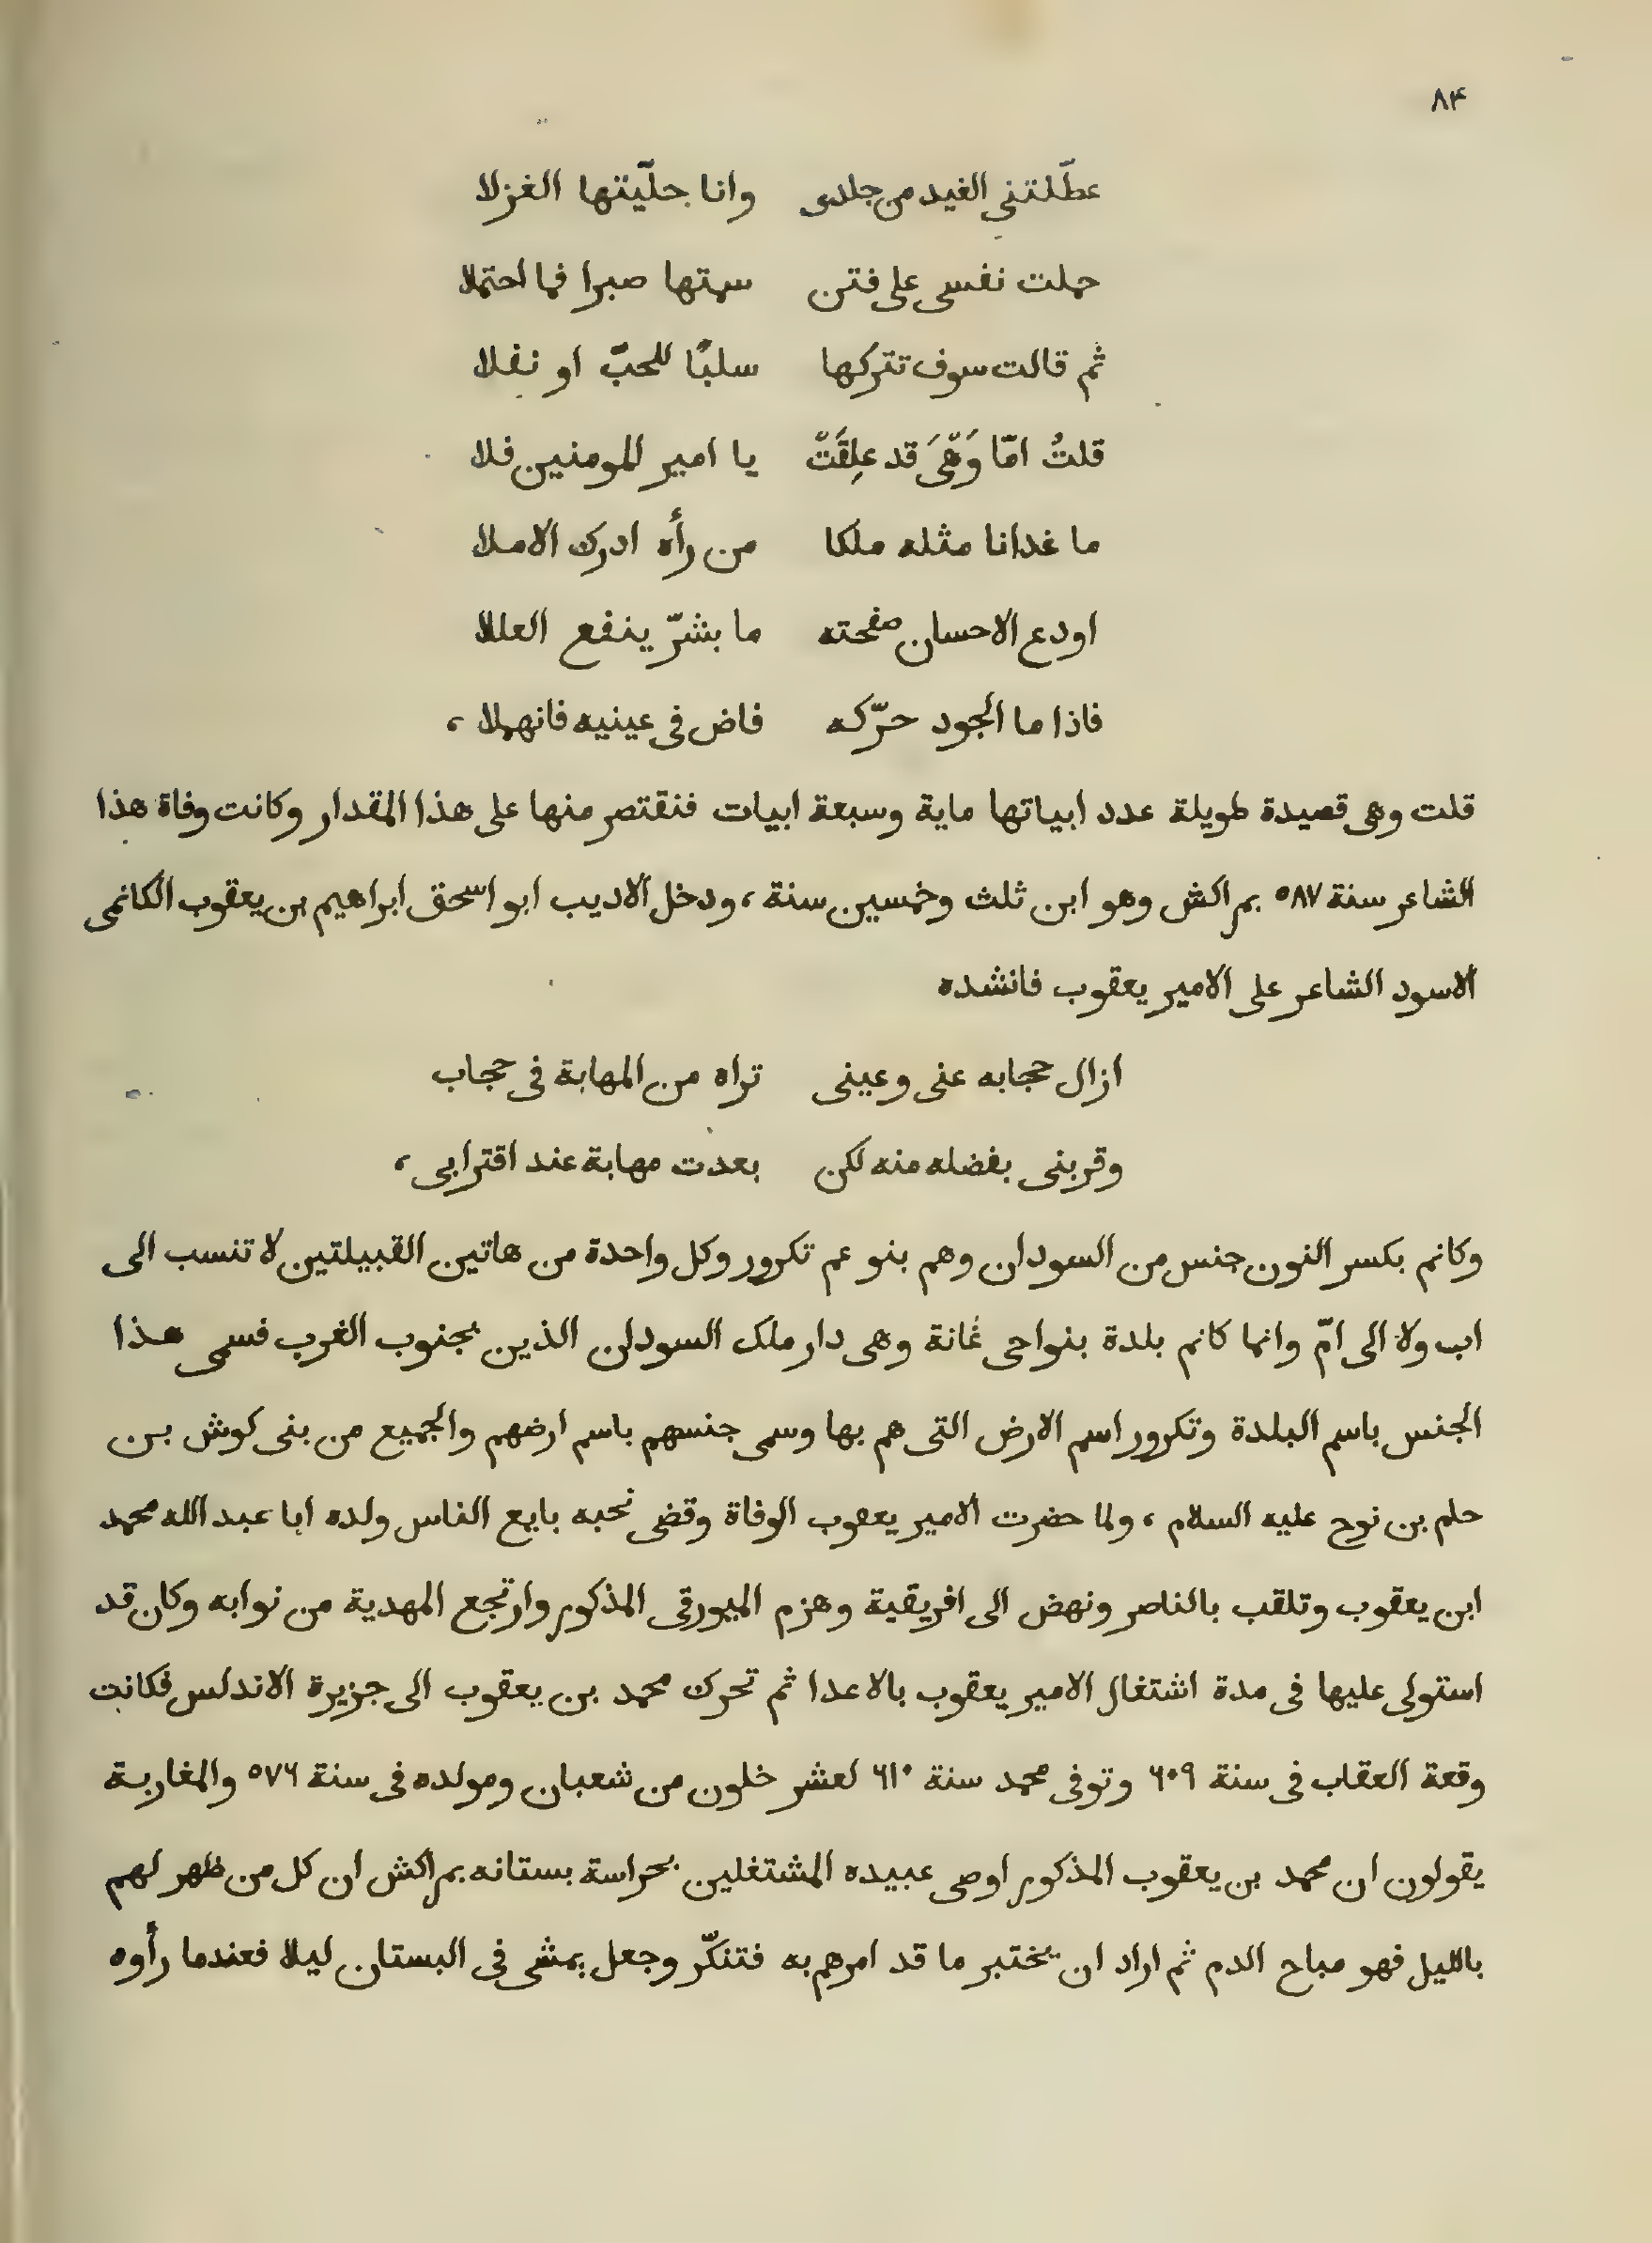 ٨٤
عطّلتني الغيد من جلدى وانا حلّيتها الغزلا
حملت نفسى على فتن سمتها صبرا فما احتملا
ثم قالت سوف تتركها سلبًا للحبّ او نفلا
قلتُ امّا وَهْىَ قد علِقَتْ يا امير المومنين فلا
ما غدانا مثله ملكا من رأه ادرك الاملا
اودع الاحسان صفحته ما بشرّ ينفع العللا
فاذا ما الجود حرّكه فاض فى عينيه فانهملا ،
قلت وهى قصيدة طويلة عدد ابياتها ماية وسبعة ابيات فنقتصر منها على هذا المقدار وكانت وفاة هذا
الشاعر سنة ٥٨٧ بمراكش وهو ابن ثلث وخمسين سنة ، ودخل الاديب ابو اسحق ابراهيم بن يعقوب الكانمى
الاسود الشاعر على الامير يعقوب فانشده
ازال حجابه عنى وعينى تراه من المهابة فى حجاب
وقربنى بفضله منه لكن بعدت مهابة عند اقترابى ،
وكانم بكسر النون جنس من السودان وهم بنو عم تكرور وكل واحدة من هاتين القبيلتين لا تنسب الى
اب ولا الى امّ وانما كانم بلدة بنواحى غانة وهى دار ملك السودان الذين بجنوب الغرب فسمى هذا
الجنس باسم البلدة وتكرور اسم الارض التى هم بها وسمى جنسهم باسم ارضهم والجميع من بنى كوش بن
حام بن نوح عليه السلام ، ولما حضرت الامير يعقوب الوفاة وقضى نحبه بايع الناس ولده ابا عبد الله محمد
ابن يعقوب وتلقب بالناصر ونهض الى افريقية وهزم الميورقى المذكور وارتجع المهدية من نوابه وكان قد
استولى عليها فى مدة اشتغال الامير يعقوب بالاعدا ثم تحرك محمد بن يعقوب الى جزيرة الاندلس فكانت
وقعة العقاب فى سنة ٦٠٩ وتوفى محمد سنة ٦١٠ لعشر خلون من شعبان ومولده فى سنة ٥٧٦ والمغاربة
يقولون ان محمد بن يعقوب المذكور اوصى عبيده المشتغلين بحراسة بستانه بمراكش ان كل من ظهر لهم
بالليل فهو مباح الدم ثم اراد ان يختبر ما قد امرهم به فتنكّر وجعل يمشى فى البستان ليلا فعندما رأوه